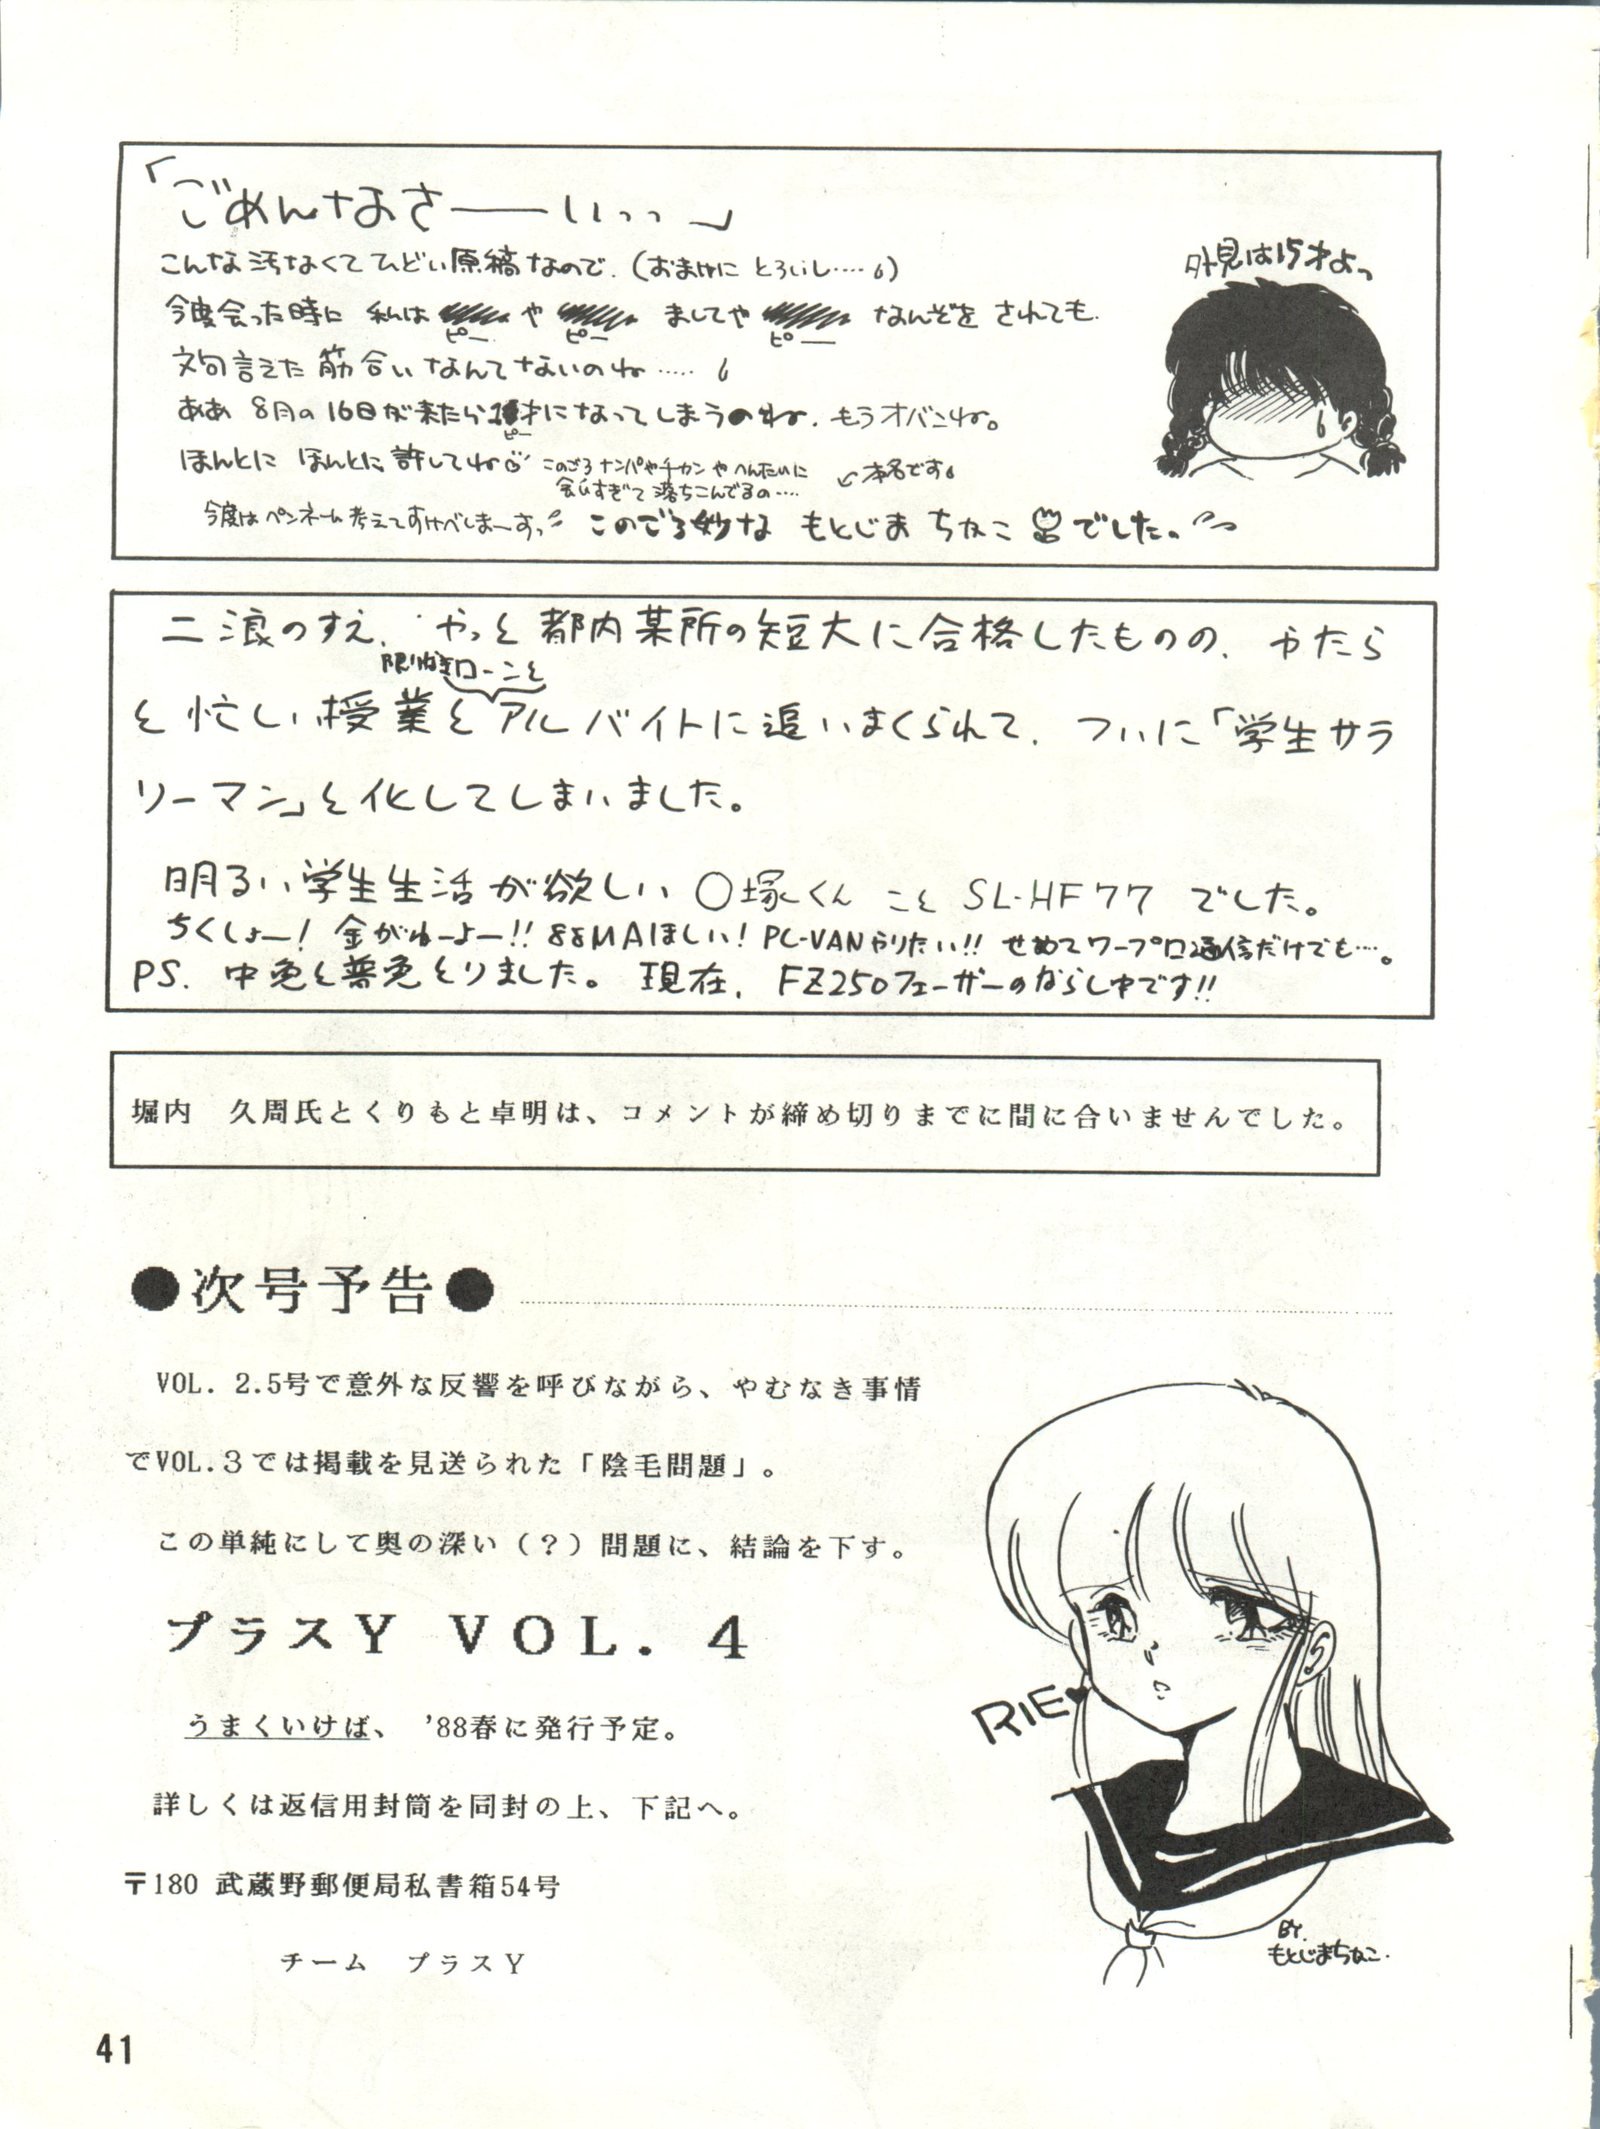 「ごめんなさ――いっっ」
こんな汚なくてひどい原稿なので.(おまけに とろいし……)
外見は15才よっ
今度会った時に 私は や ましてや なんぞを されても.
ピー ピー ピー
文句言えた筋合いなんてないのね……
ああ 8月の16日が来たら 才になってしまうのね. もうオバンね。
ピー
ほんとに ほんとに許してね
このごろナンパやチカンやへんたいに
会いすぎて落ちこんでるの……
↙本名です
今度はペンネーム考えてすけべしまーすっ
このごろ妙な もとじま ちなこ でした。
二浪のすえ. やっと都内某所の短大に合格したものの. やたら
限りなきローンと
と忙しい授業とアルバイトに追いまくられて. ついに「学生サラ
リーマン」と化してしまいました。
明るい学生生活が欲しい ○塚くん こと SL-HF77 でした。
ちくしょー! 金がねーよー!! 88MAほしい! PC-VANやりたい!! せめてワープロ通信だけでも…。
PS. 中免と普免とりました。 現在. FZ250フェーザーのならし中です!!
堀内 久周氏とくりもと卓明は、コメントが締め切りまでに間に合いませんでした。
●次号予告●
VOL. 2.5号で意外な反響を呼びながら、やむなき事情
でVOL.3では掲載を見送られた「陰毛問題」。
この単純にして奥の深い(?)問題に、結論を下す。
プラスY VOL. 4
うまくいけば、'88春に発行予定。
RIE♥
詳しくは返信用封筒を同封の上、下記へ。
〒180 武蔵野郵便局私書箱54号
チーム プラスY
BY.
もとじまちなこ.
41